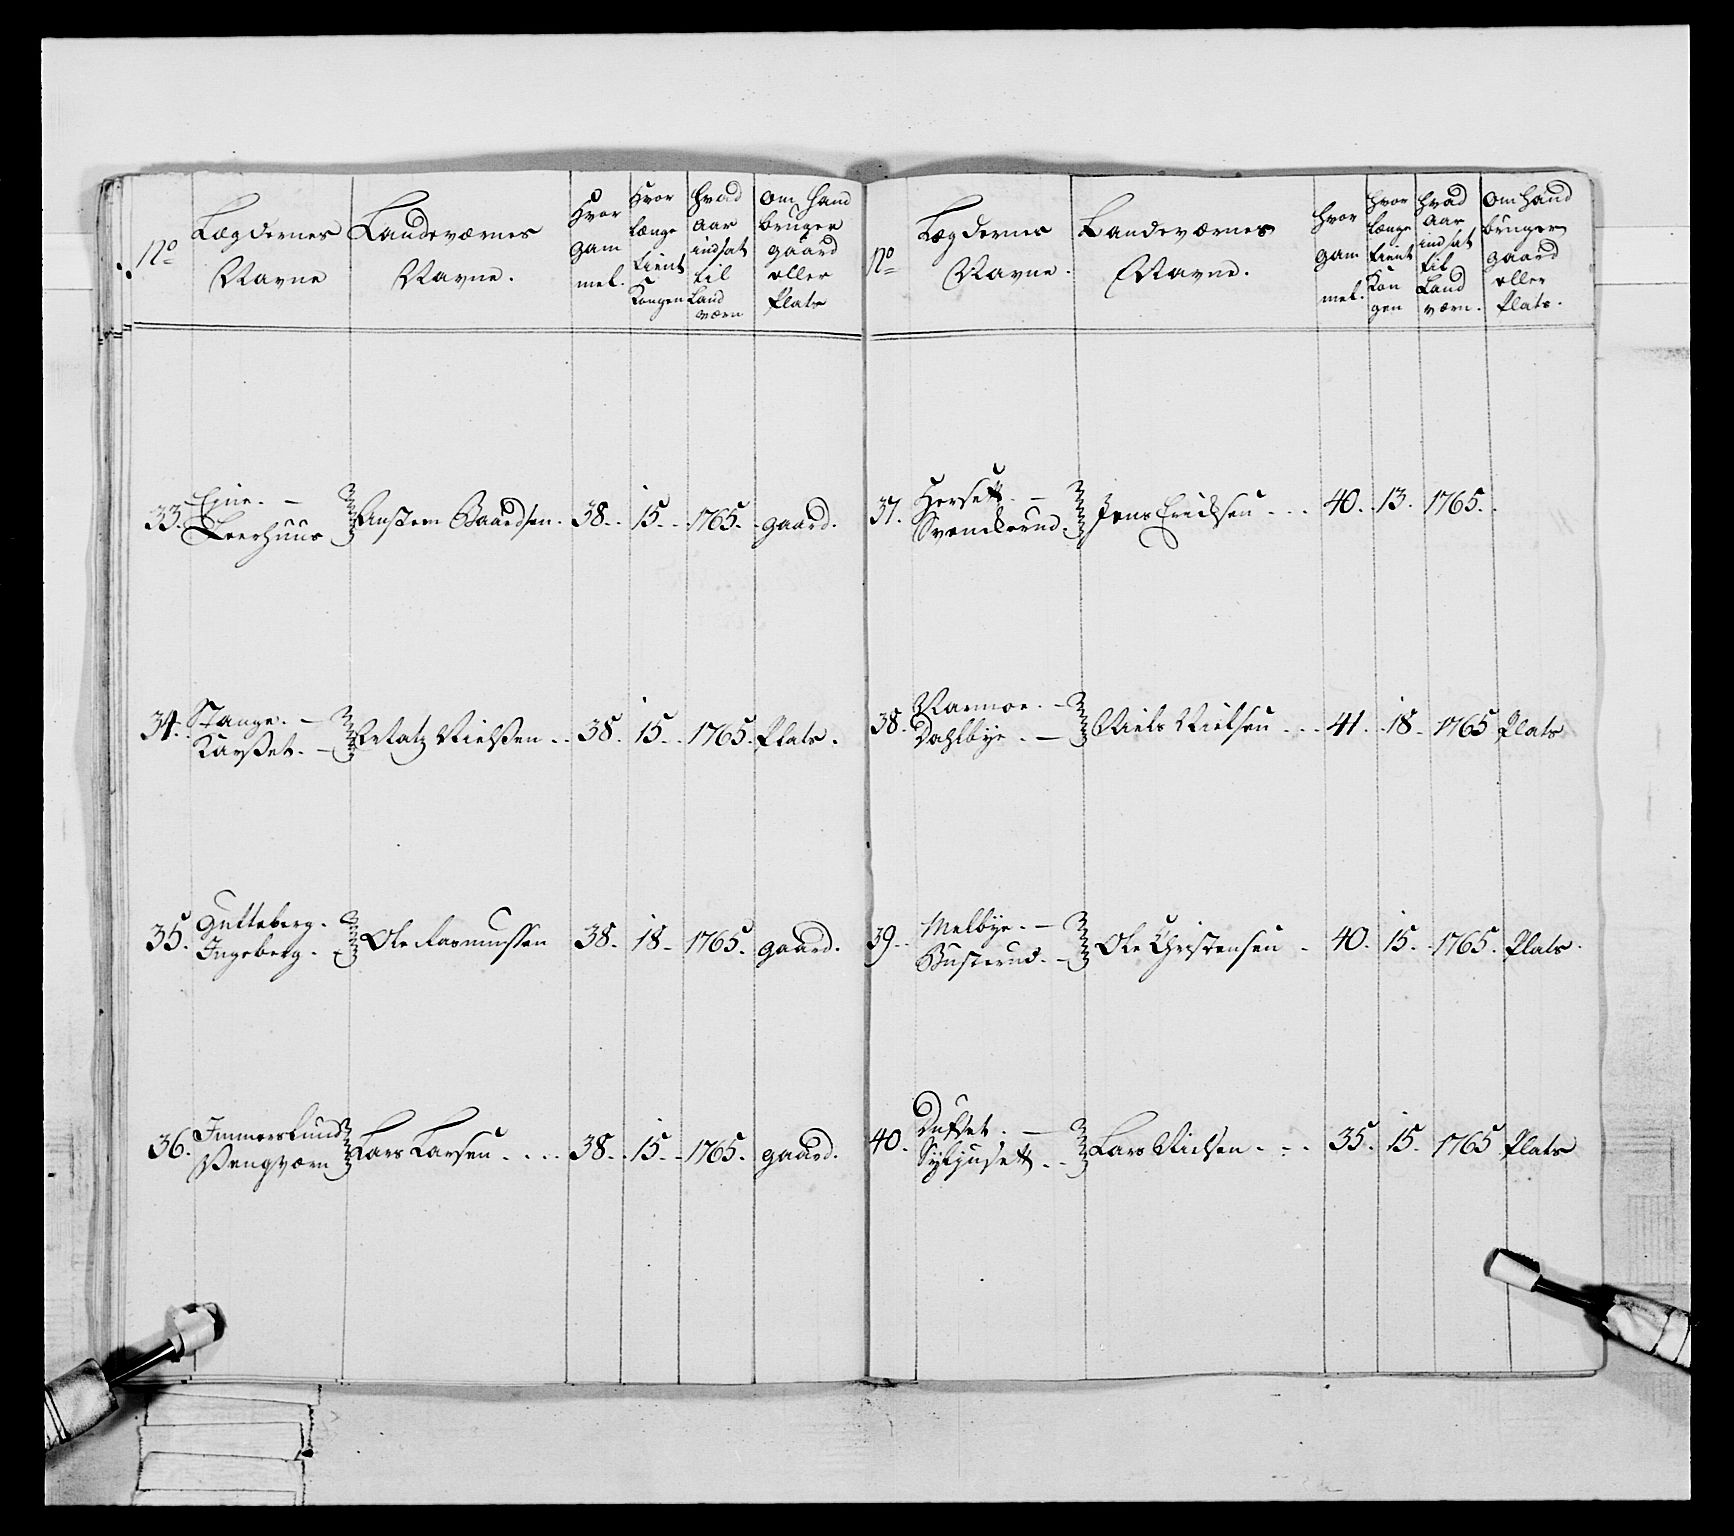 No
Lægdernes
Navne
Landeværnes
Navne.
Hvor
gam
mel.
Hvor
længe
tient
Kongen
Hvad
aar
indsat
til
Land
værn
Om Hand
bruger
gaard
eller
Plats
33. Eine. — Leerhuus Amsten Baardsen. 38. 15. 1765. gaard.
34. Stange. — Karset. — Nielsen 38. 15. 1765. Plats.
35. Gutteberg. Ingeberg. Ole Rasmussen 38. 18. 1765. gaard.
36. Immerslund Vengværn Lars Larsen 38. 15. 1765. gaard.
No
Lægdernes
Navne.
Landeværnes
Navne.
Hvor
gam
mel.
Hvor
længe
tient
Kon
gen
Hvad
aar
indsat
til
Land
værn.
Om Hand
bruger
gaard
eller
Plats.
37. Horsett. — Svenckerud. Jens Ericksen 40. 13. 1765.
38. Narmoe. — Dahlbye. — Niels Nielsen 41. 18. 1765 Plats
39. Melbye. — Busterud. — Ole Christensen 40. 15. 1765. Plats.
40. Dufset. — Lars Nielsen 35. 15. 1765 Plats